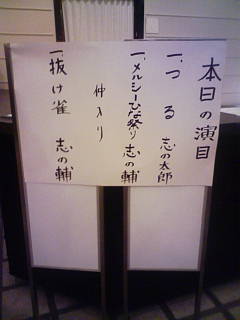 本日の演目
一、つる 志の太郎
一、メルシーひな祭り 志の輔
仲入り
一、抜け雀 志の輔